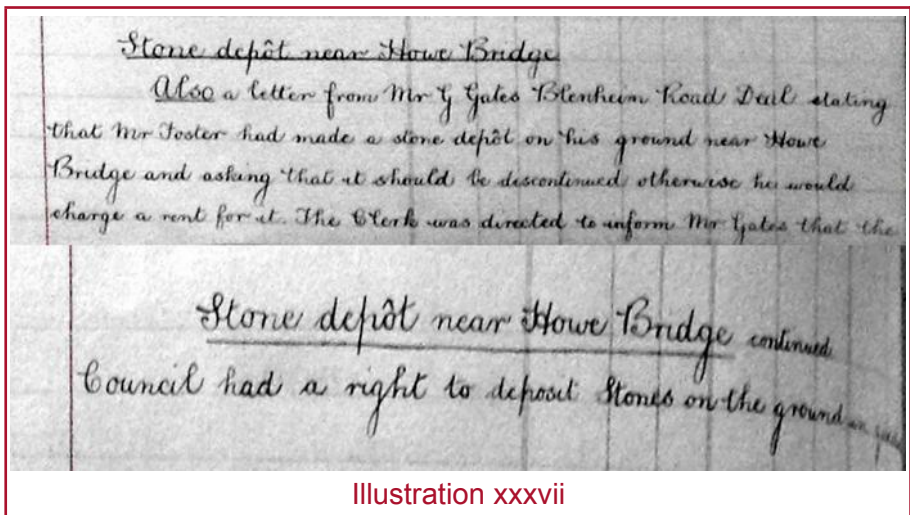 Stone depôt near Howe Bridge
Also a letter from Mr G Gates Blenheim Road Deal stating
that Mr Foster had made a stone depôt on his ground near Howe
Bridge and asking that it should be discontinued otherwise he would
charge a rent for it. The Clerk was directed to inform Mr Gates that the
Stone depôt near Howe Bridge continued
Council had a right to deposit Stones on the ground
Illustration xxxvii